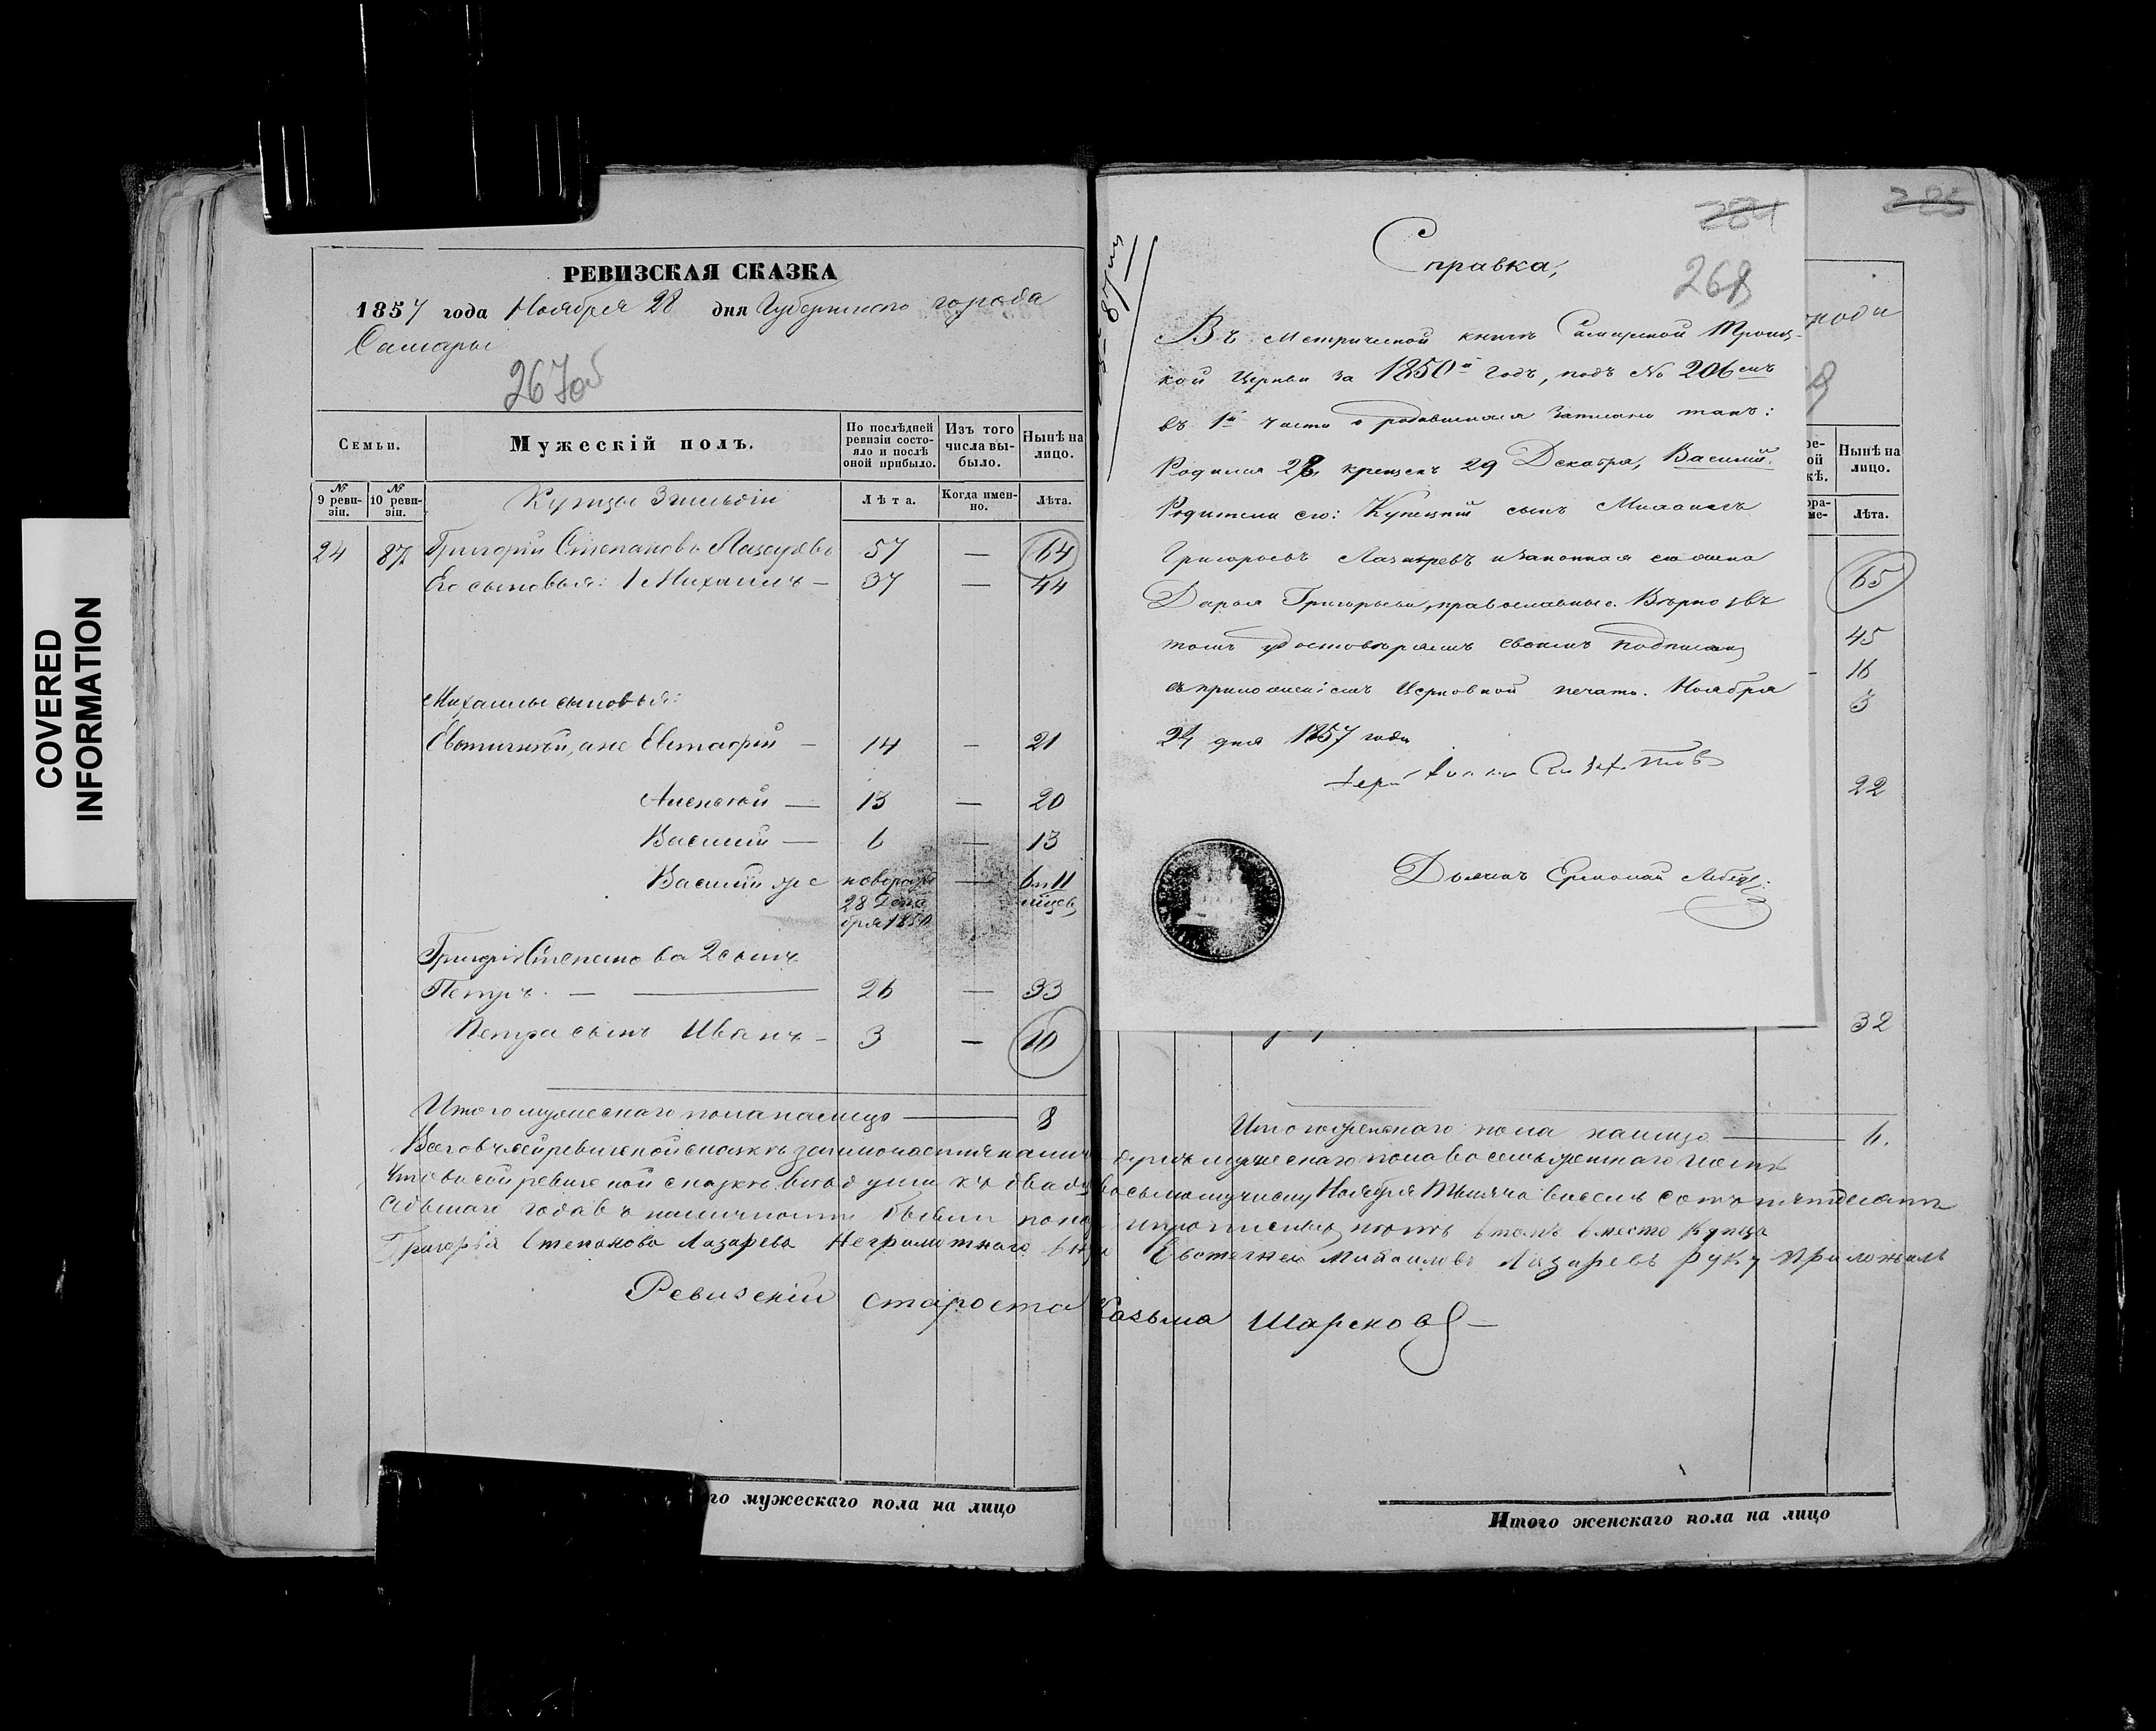 COVERED
INFORMATION
РЕВИЗСКАЯ СКАЗКА
1857 года Ноября 28 дня Губернскаго города
Самары
267об
Семьи.
Мужескій полъ.
По послѣдней ревизіи состояло и послѣ оной прибыло.
Изъ того числа выбыло.
Нынѣ на лицо.
№ 9 ревизіи.
№ 10 ревизіи.
Купцы 3 гильдіи
Лѣта.
Когда именно.
Лѣта.
24 87 Григорій Степановъ Лазаревъ 57 — 64
Его сыновья: 1 Михаилъ — 37 — 44
Михаилы сыновья:
Евстигнѣй, а не Евстафій — 14 — 21
Алексѣй — 13 — 20
Василій — 6 — 13
Василій же новорожд 28 Декабря 1850 — 6 и 11 мѣсяц
Григорія Степанова 2 сынъ
Петръ — 26 — 33
Петра сынъ Иванъ — 3 — 10
Итого мужескаго пола налицо — 8
Справка,
284
268
Въ Метрической книгѣ Самарской Троиц-
кой Церкви за 1850й годъ, подъ № 206емъ
въ 1й части о родившихся записано такъ:
Родился 28, крещенъ 29 Декабря, Василій.
Родители его: Купецкій сынъ Михаилъ
Григорьевъ Лазаревъ и законная его жена
Дарья Григорьева, православные. Вѣрно въ
томъ удостовѣряемъ своимъ подписомъ
съ приложеніемъ Церковной печати. Ноября
24 дня 1857 года
Дьячекъ
285
Нынѣ на лицо.
Лѣта.
65
45
16
3
22
32
Итого женскаго пола налицо — 6.
Всего въ сей ревизской сказкѣ душъ мужескаго пола восемь женскаго шесть
что въ сей ревизской сказкѣ всѣ души къ двадцать восьмому числу Ноября Тысяча восемь сотъ пятьдесятъ
седьмаго года въ наличности бывши показаны и прописныхъ нѣтъ в томъ вместо Купца
Григорья Степанова Лазарева Неграмотнаго внук Евстегней Михаиловъ Лазаревъ руку приложилъ
Ревизскій староста Козьма Шарсковъ
го мужескаго пола на лицо
Итого женскаго пола на лицо